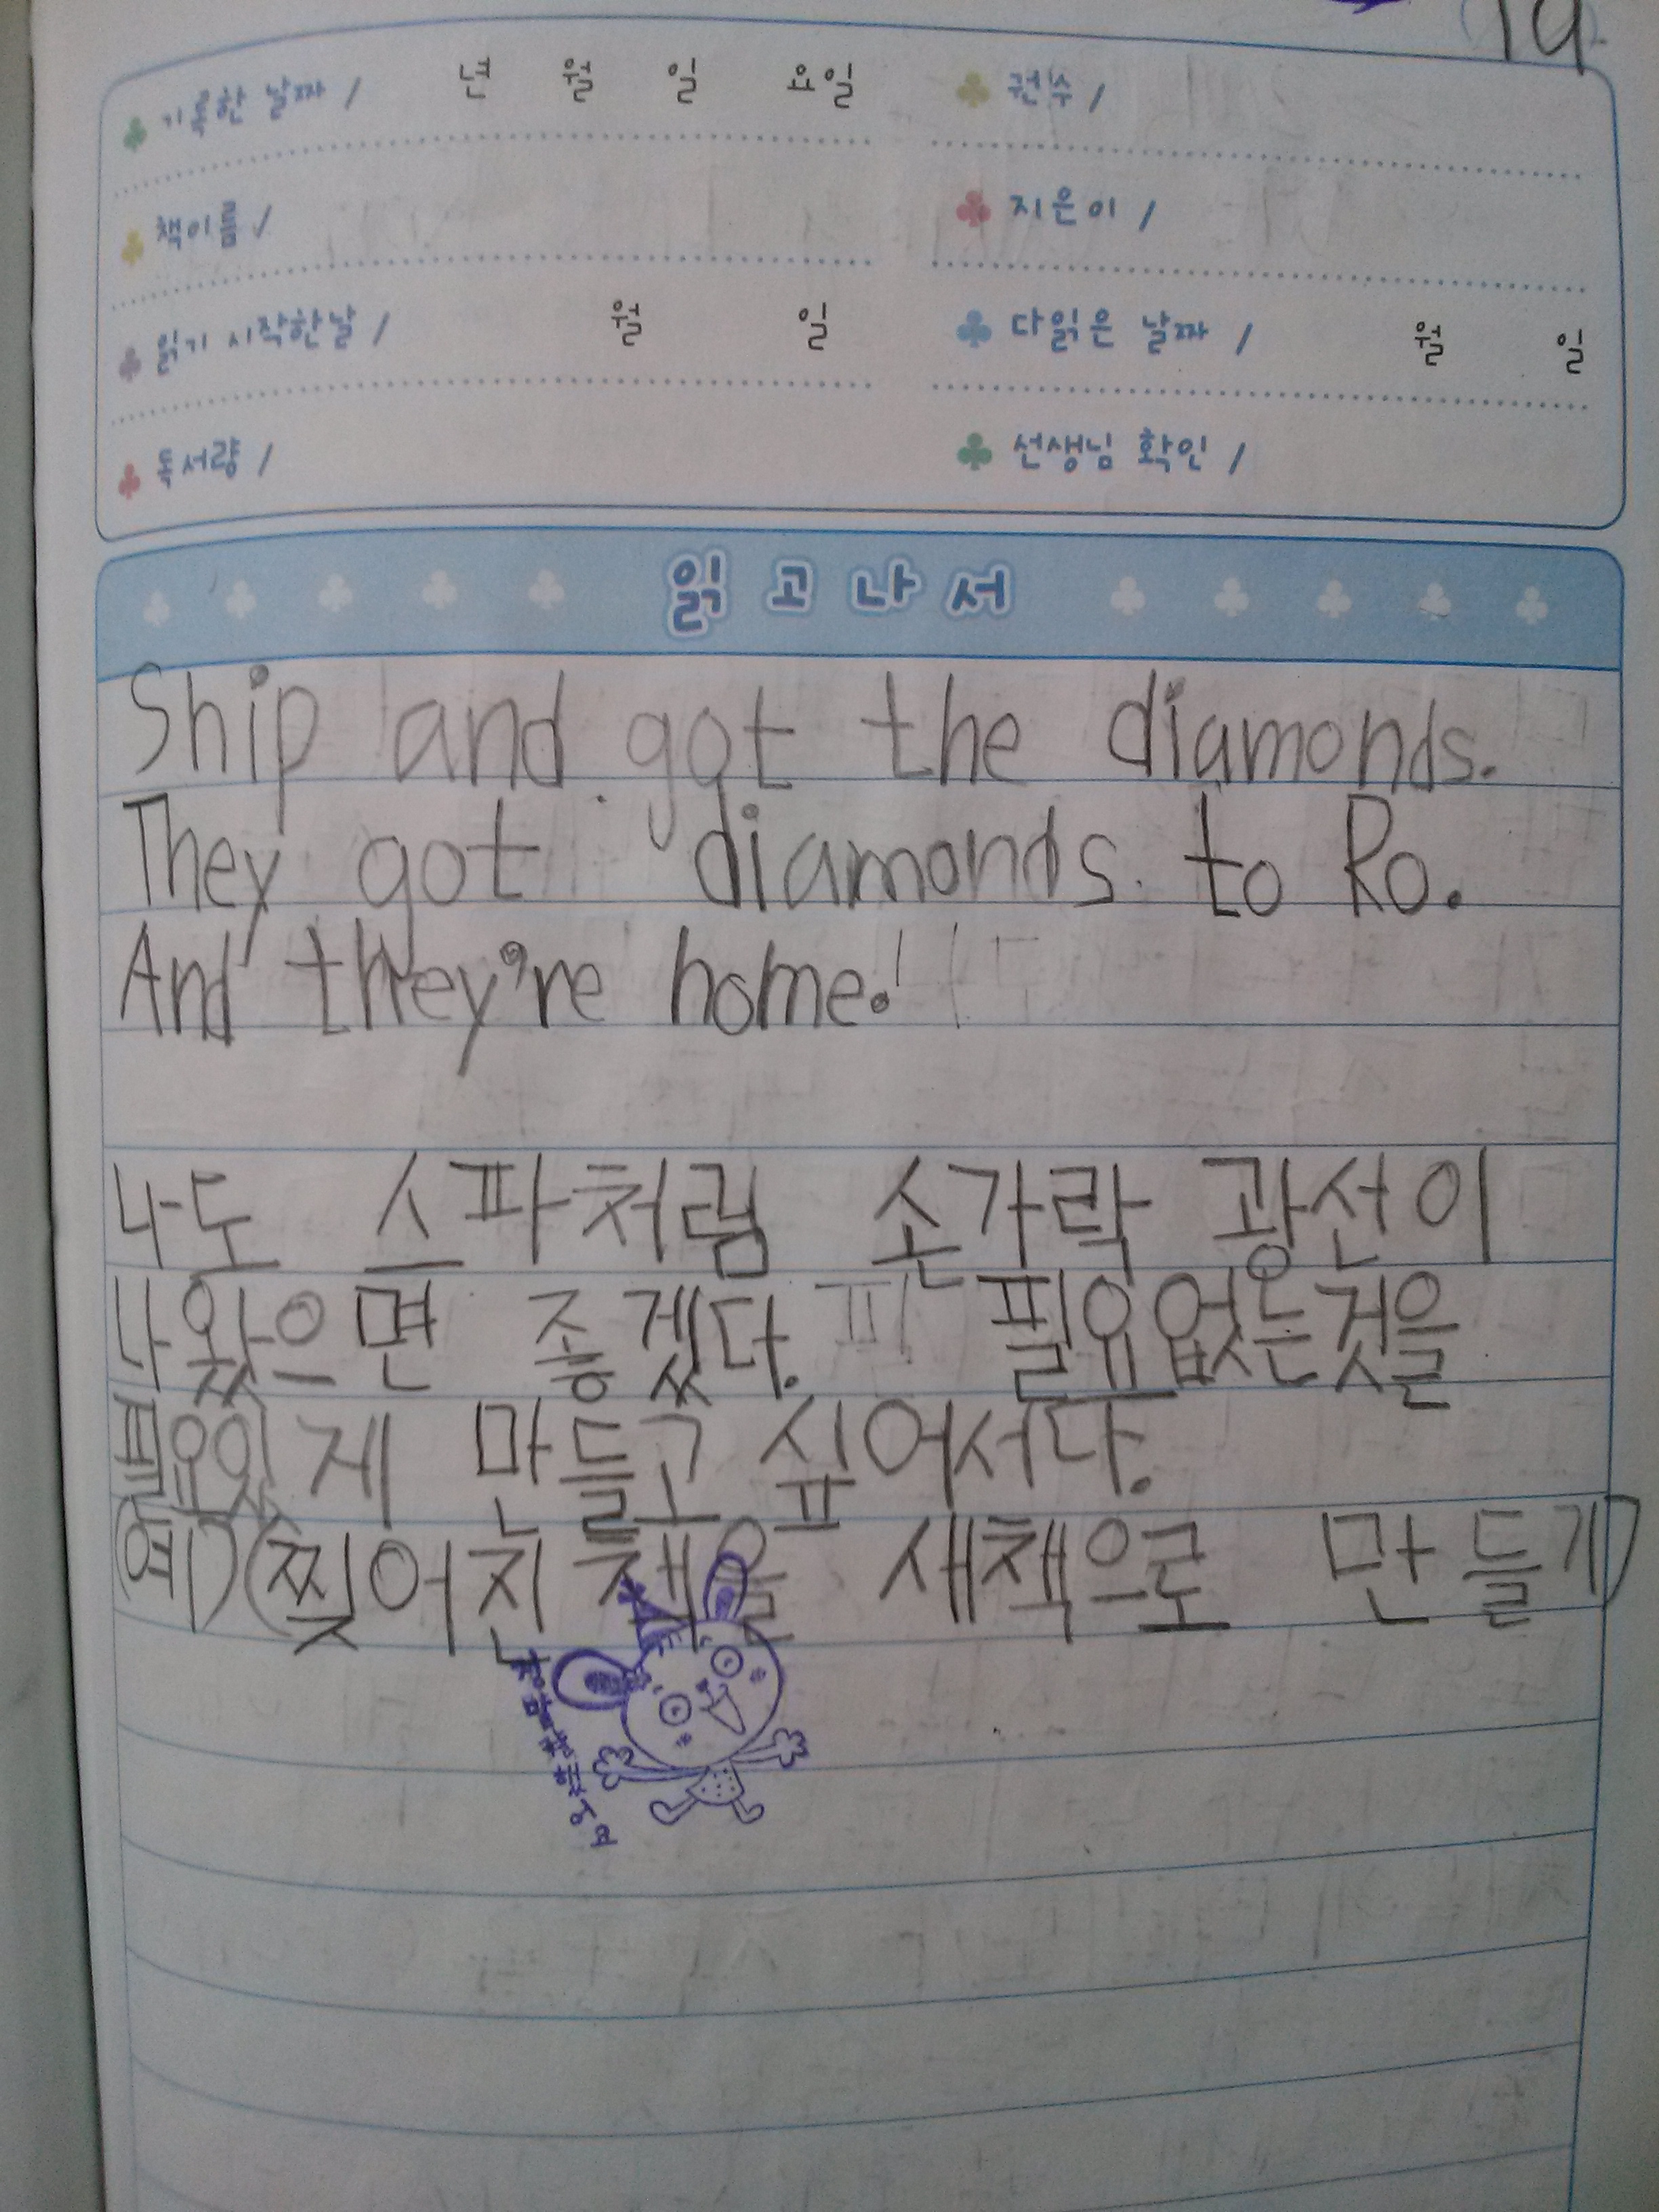 19
기록한 날짜 / 년 월 일 요일
권수 /
책이름 /
지은이 /
읽기 시작한날 / 월 일
다읽은 날짜 / 월 일
독서량 /
선생님 확인 /
읽고나서
Ship and got the diamonds.
They got diamonds to Ro.
And they're home.
나도 스파처럼 손가락 광선이
나왔으면 좋겠다. 필요없는것을
필요있게 만들고 싶어서다.
예) (찢어진 책을 새책으로 만들기)